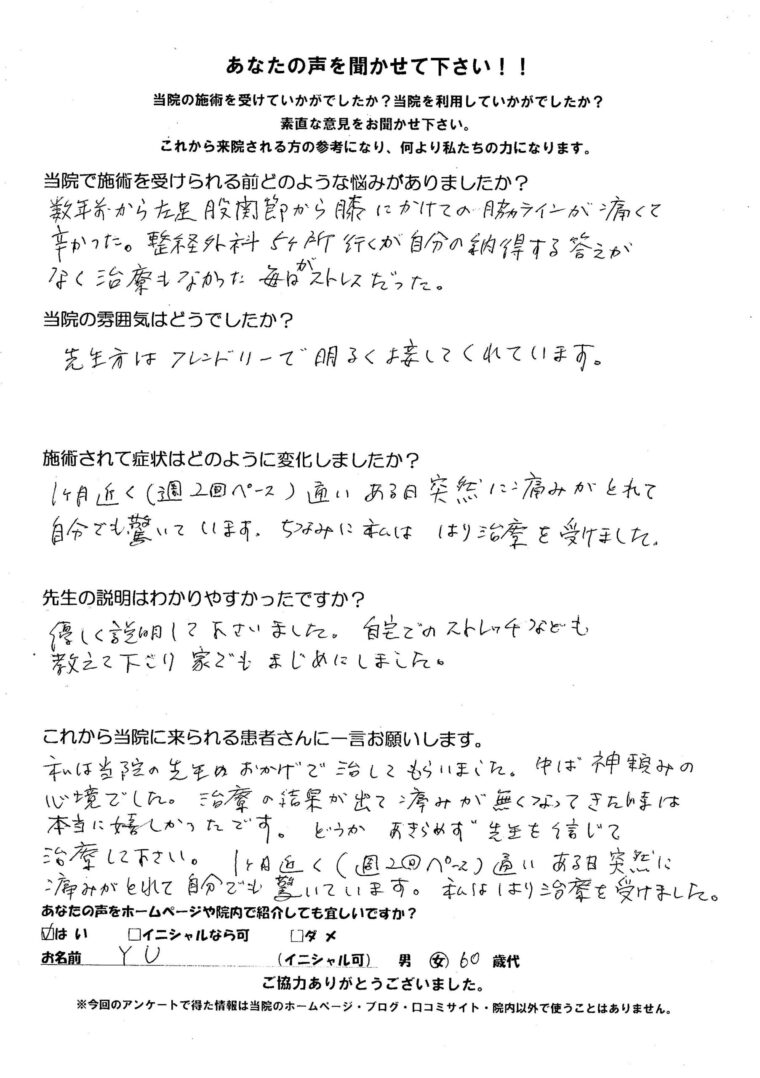 あなたの声を聞かせて下さい！！
当院の施術を受けていかがでしたか？当院を利用していかがでしたか？
素直な意見をお聞かせ下さい。
これから来院される方の参考になり、何より私たちの力になります。
当院で施術を受けられる前どのような悩みがありましたか？
数年前から左足股関節から膝にかけての脇ラインが痛くて
辛かった。整経外科 5ヶ所 行くが自分の納得する答えが
なく治療もなかった 毎日がストレスだった。
当院の雰囲気はどうでしたか？
先生方はフレンドリーで明るく接してくれています。
施術されて症状はどのように変化しましたか？
1ヶ月近く(週2回ペース)通い ある日突然に痛みがとれて
自分でも驚いています。ちなみに私は はり治療を受けました。
先生の説明はわかりやすかったですか？
優しく説明して下さいました。自宅でのストレッチなども
教えて下さり 家でもまじめにしました。
これから当院に来られる患者さんに一言お願いします。
私は当院の先生のおかげで治してもらいました。中ば神頼みの
心境でした。治療の結果が出て痛みが無くなってきた時は
本当に嬉しかったです。どうか あきらめず 先生を信じて
治療して下さい。 1ヶ月近く(週2回ペース)通い ある日突然に
痛みがとれて自分でも驚いています。私ははり治療を受けました。
あなたの声をホームページや院内で紹介しても宜しいですか？
☑はい □イニシャルなら可 □ダメ
お名前 YU (イニシャル可) 男 ㊛ 60 歳代
ご協力ありがとうございました。
※今回のアンケートで得た情報は当院のホームページ・ブログ・口コミサイト・院内以外で使うことはありません。